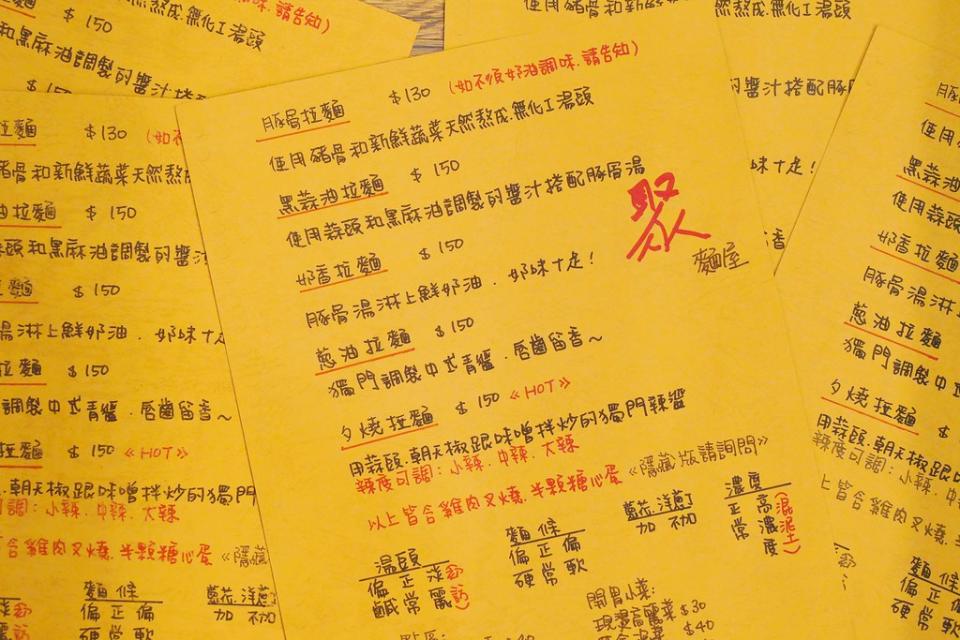 豚骨拉麵 $130 (如不須奶油調味.請告知)
使用豬骨和新鮮蔬菜天然熬成.無化工湯頭
黑蒜油拉麵 $150
使用蒜頭和黑麻油調製的醬汁搭配豚骨湯
聚
麵屋
奶香拉麵 $150
豚骨湯淋上鮮奶油.奶味十足!
蔥油拉麵 $150
獨門調製中式青醬.唇齒留香~
夕燒拉麵 $150 《HOT》
用蒜頭.朝天椒跟味噌拌炒的獨門辣醬
辣度可調:小辣.中辣.大辣
以上皆含雞肉叉燒.半顆糖心蛋《隱藏版請詢問》
湯頭 麵候 蔥花.洋蔥丁 濃度
偏正 偏正偏 加 不加 正高
鹹常 硬常軟 常濃度
開胃小菜:
現漬高麗菜 $30
$40